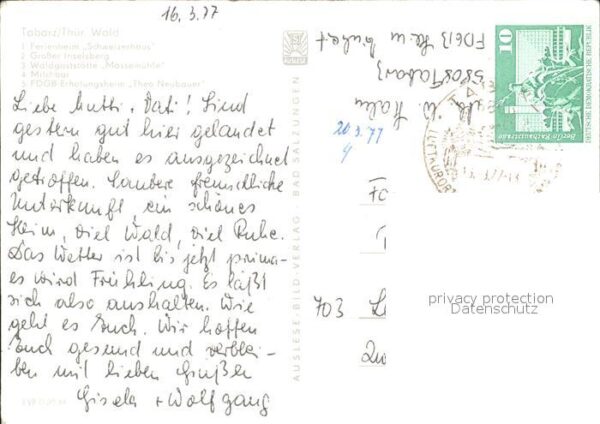 16.3.77
Tabarz/Thür. Wald
1 Ferienheim „Schweizerhaus"
2 Großer Inselsberg
3 Waldgaststätte „Massemühle"
4 Milchhaus
5 FDGB-Erholungsheim „Theo Neubauer"
Liebe Mutti, Vati! Sind
gestern gut hier gelandet
und haben es ausgezeichnet
getroffen. Saubere freundliche
Unterkunft, ein schönes
Heim, viel Wald, viel Ruhe.
Das Wetter ist bis jetzt prima-
es wird Frühling. Es läßt
sich also aushalten. Wie
geht es Euch. Wir hoffen
Euch gesund und verblei-
ben mit lieben Grüßen
Gisela + Wolfgang
AUSLESE-BILD-VERLAG · BAD SALZUNGEN
5808 Tabarz
FDGB Heim
20.3.77
703
10
Berlin-Rathausstraße
DEUTSCHE DEMOKRATISCHE REPUBLIK
privacy protection
Datenschutz